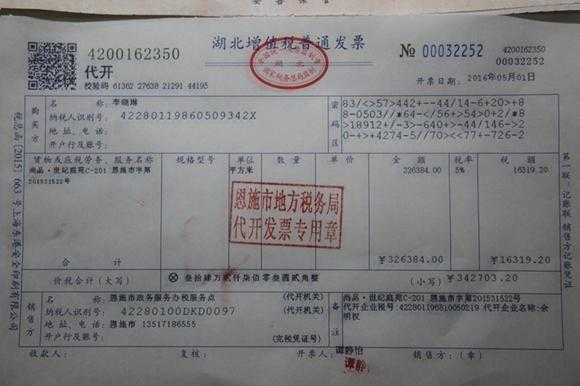 4200162350
湖北增值税普通发票
№ 00032252
4200162350
00032252
代开
校验码 61362 27638 21291 44195
全国统一发票监制章
湖北
国家税务总局监制
开票日期：2016年05月01日
购买方
名称：李晓琳
纳税人识别号：42280119860509342X
地址、电话：
开户行及账号：
密码区
83/<>57>442+--44/14-6+20>+8
8-0503//*64-</56+>54>0+2/*8
>18912+/-3-640+-44/-144-6-2
0-+>+4274-5//70><77+-726-2
货物或应税劳务、服务名称
规格型号
单位
数量
单价
金额
税率
税额
尚品·世纪庭苑C-201 恩施市字第201531522号
平方米
326384.00
5%
16319.20
恩施市地方税务局
代开发票专用章
合计
¥326384.00
¥16319.20
价税合计（大写）
叁拾肆万贰仟柒佰零叁圆贰角整
（小写）¥342703.20
销售方
名称：恩施市政务服务办税服务点
（代开机关）
纳税人识别号：42280100DKD0097
（代开机关）
地址、电话：恩施市 13517186555
开户行及账号：
（完税凭证号）
备注
尚品·世纪庭苑C-201 恩施市字第201531522号
代开企业税号:422801196810050219 代开企业名称:余明权
收款人：
复核：
开票人：谭静怡
谭静
销售方：（章）
第一联：记账联 销售方记账凭证